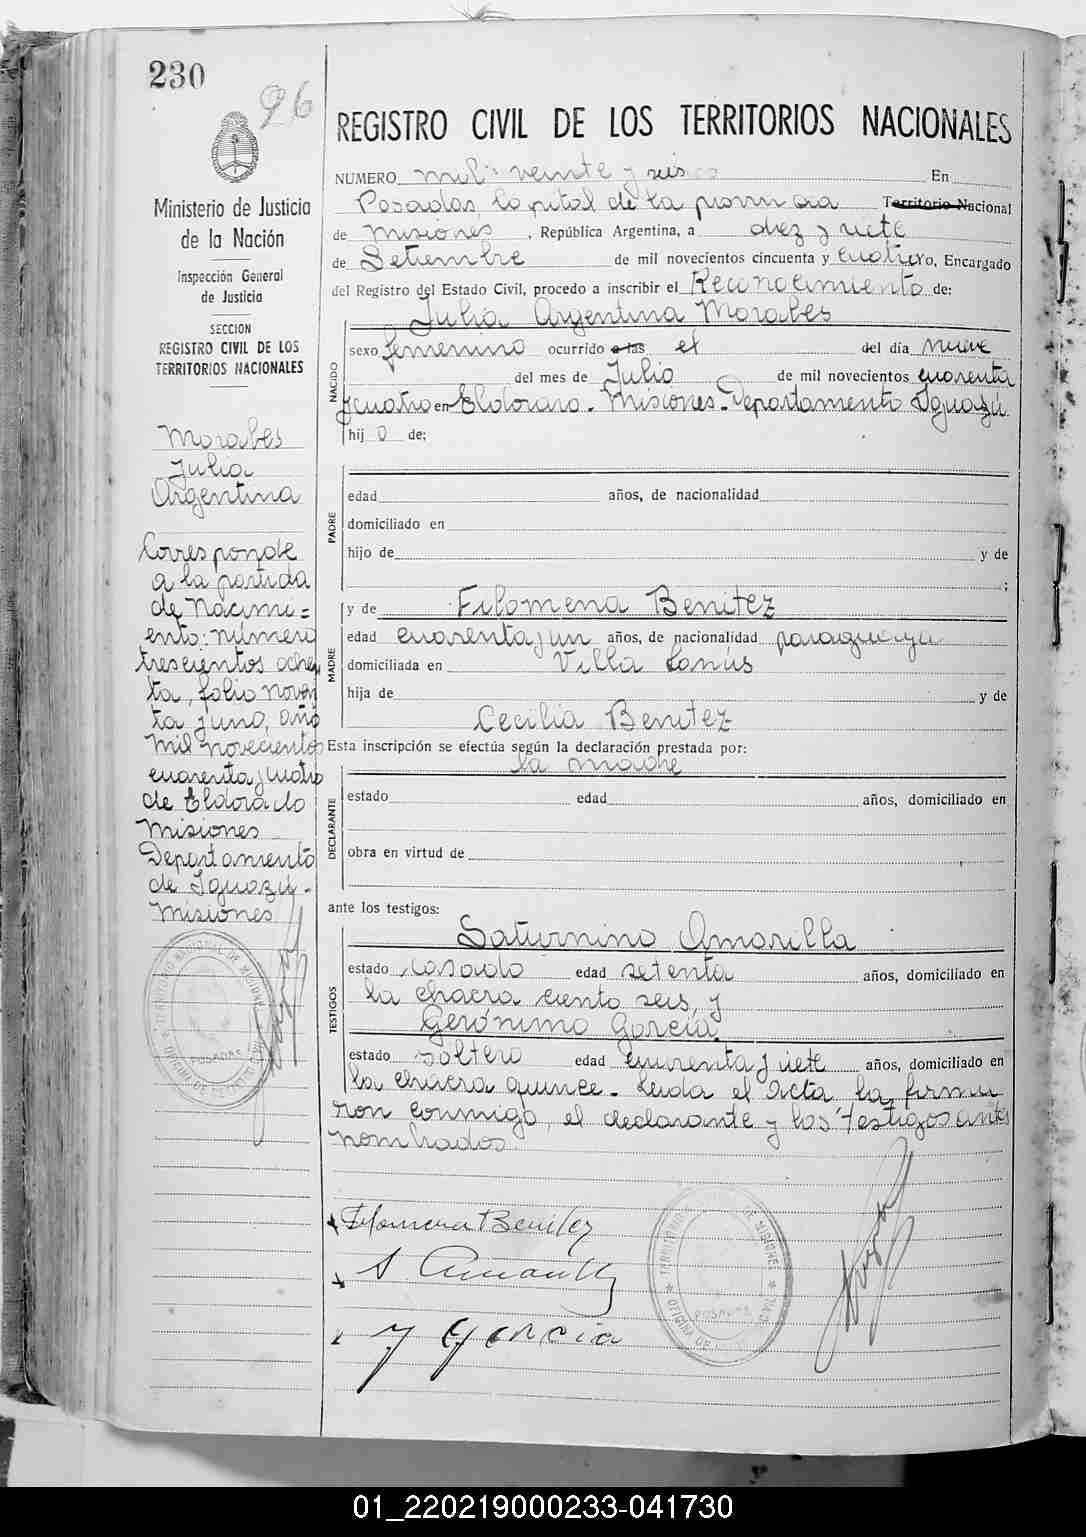 230
96
Ministerio de Justicia
de la Nación
Inspección General
de Justicia
SECCION
REGISTRO CIVIL DE LOS
TERRITORIOS NACIONALES
Morabes
Julia
Argentina
Corresponde
a la partida
de Nacimi=
ento: número
trescientos ochen
ta, folio noven
ta y uno, año
mil novecientos
cuarenta y cuatro
de Eldorado
Misiones
Departamento
de Iguazú-
Misiones
REGISTRO CIVIL DE LOS TERRITORIOS NACIONALES
NUMERO mil veinte y seis En
Posadas, Capital de la provincia Territorio Nacional
de Misiones, República Argentina, a diez y siete
de Setiembre de mil novecientos cincuenta y cuatro, Encargado
del Registro del Estado Civil, procedo a inscribir el Reconocimiento de:
Julia Argentina Morabes
NACIDO
sexo femenino ocurrido a las el del día nueve
del mes de Julio de mil novecientos cuarenta
y cuatro en Eldorado - Misiones - Departamento Iguazú
hij a de;
PADRE
edad años, de nacionalidad
domiciliado en
hijo de y de
;
MADRE
y de Filomena Benitez
edad cuarenta y un años, de nacionalidad paraguaya
domiciliada en Villa Lanús
hija de y de
Cecilia Benitez
Esta inscripción se efectúa según la declaración prestada por:
la madre
DECLARANTE
estado edad años, domiciliado en
obra en virtud de
ante los testigos:
TESTIGOS
Saturnino Amarilla
estado casado edad setenta años, domiciliado en
la chacra ciento seis, y
Gerónimo García
estado soltero edad cuarenta y siete años, domiciliado en
la chacra quince - Leida el acta la firma
ron conmigo, el declarante y los testigos antes
nombrados
Filomena Benitez
S. Amarilla
J Garcia
POSADAS
01_220219000233-041730